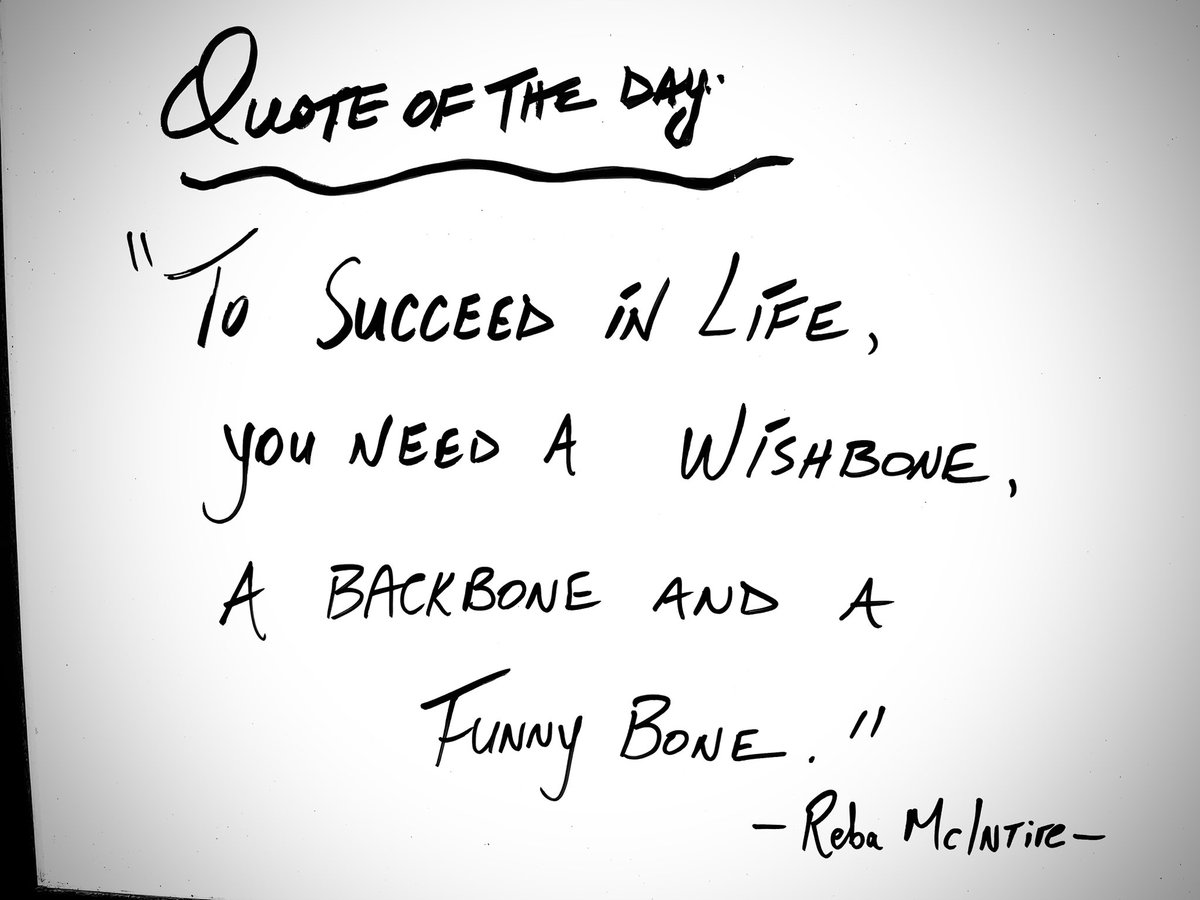 Quote of the Day:
"To Succeed in Life,
you need a Wishbone,
a backbone and a
Funny Bone."
- Reba McIntire -